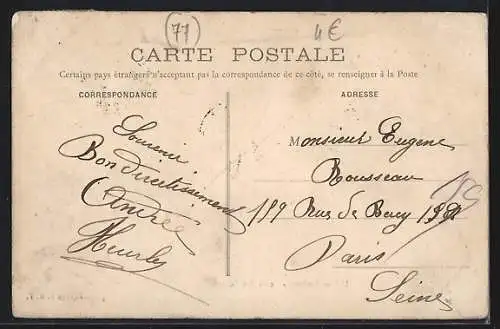 77
4€
CARTE POSTALE
Certains pays étrangers n'acceptant pas la correspondance de ce côté, se renseigner à la Poste
CORRESPONDANCE
ADRESSE
Souvenir
Bon divertissement
Andrée
Monsieur Eugene
Rousseau
189 Rue de Bercy
Paris
Seine